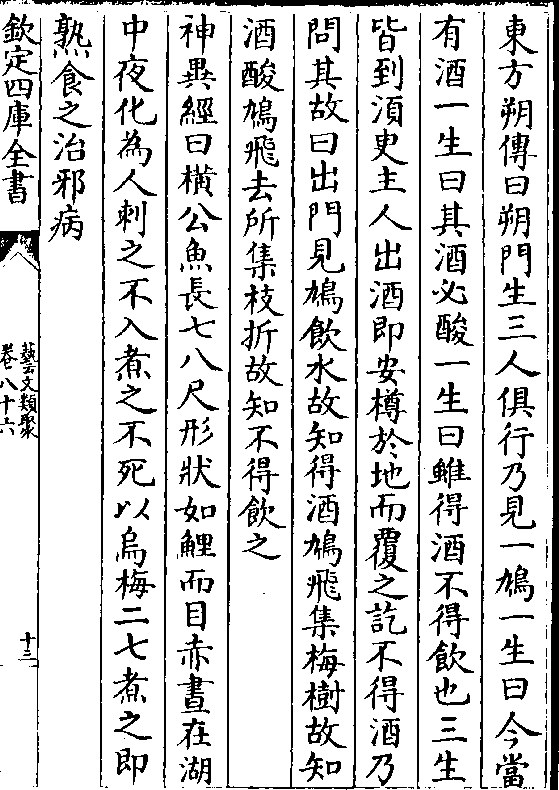 東方朔傳曰朔門生三人俱行乃見一鳩一生曰今當
有酒一生曰其酒必酸一生曰雖得酒不得飲也三生
皆到須吏主人出酒即安樽於地而覆之訖不得酒乃
問其故曰出門見鳩飲水故知得酒鳩飛集梅樹故知
酒酸鳩飛去所集枝折故知不得飲之
神異經曰橫公魚長七八尺形狀如鯉而目赤晝在湖
中夜化為人刺之不入煮之不死以烏梅二七煮之即
熟食之治邪病
欽定四庫全書
藝文類聚
卷八十六
十三